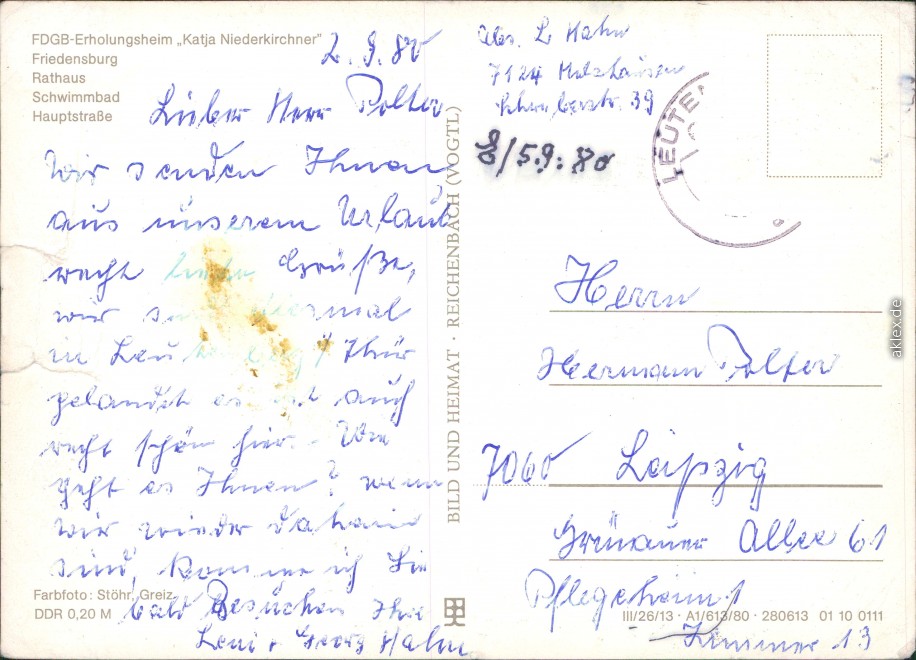 FDGB-Erholungsheim „Katja Niederkirchner"
Friedensburg
Rathaus
Schwimmbad
Hauptstraße
2.9.80
Lieber Herr Polter
Wir senden Ihnen
aus unserem Urlaub
recht liebe Grüße,
wir sind diesmal
in Leutenberg / Thür
gelandet es ist auch
recht schön hier. Wie
geht es Ihnen? wenn
wir wieder daheim
sind, komme ich Sie
bald Besuchen Ihre
Leni + Georg Hahn
Farbfoto: Stöhr, Greiz
DDR 0,20 M
BILD UND HEIMAT · REICHENBACH (VOGTL)
Abs. L Hahn
7124 Holzhausen
39
E/5.9.80
LEUTEN
Herrn
Hermann Polter
7060 Leipzig
Grünauer Allee 61
Pflegeheim 1
III/26/13 · A1/613/80 · 280613 01 10 0111
Zimmer 13
aklex.de